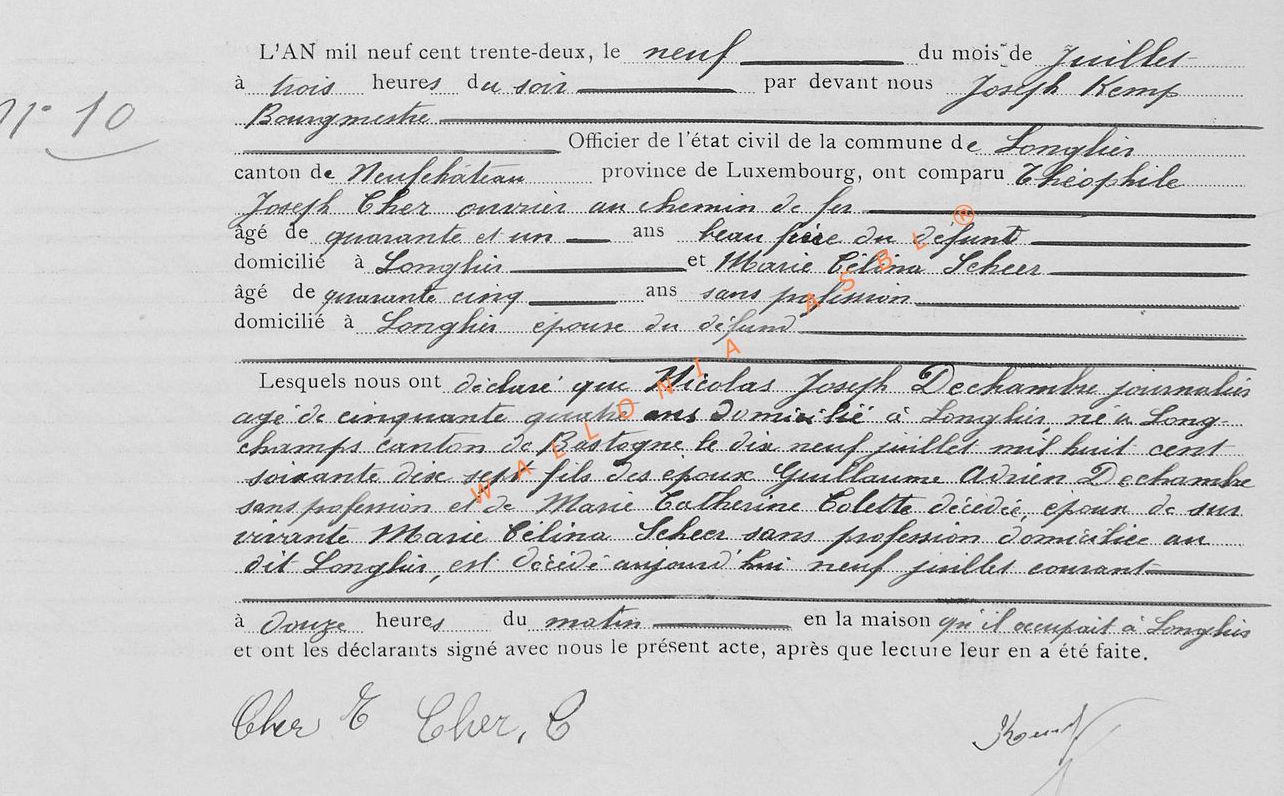 L'AN mil neuf cent trente-deux, le neuf du mois de Juillet
à trois heures du soir par devant nous Joseph Kemp
N° 10
Bourgmestre
Officier de l'état civil de la commune de Longlier
canton de Neufchâteau province de Luxembourg, ont comparu Théophile
Joseph Cher ouvrier au chemin de fer
âgé de quarante et un ans beau frère du défunt
domicilié à Longlier et Marie Célina Scheer
âgé de quarante cinq ans sans profession
domicilié à Longlier épouse du défund
Lesquels nous ont déclaré que Nicolas Joseph Dechambre journalier
agé de cinquante quatre ans domicilié à Longlier, né à Long-
champs canton de Bastogne le dix neuf juillet mil huit cent
soixante dix sept fils des epoux Guillaume Adrien Dechambre
sans profession et de Marie Catherine Colette décédée, epoux de sur
vivante Marie Célina Scheer sans profession domiciliée au
dit Longlier, est décédé aujourd'hui neuf juillet courant
à douze heures du matin en la maison qu'il occupait à Longlier
et ont les déclarants signé avec nous le présent acte, après que lecture leur en a été faite.
Cher T Cher, C Kemp
WALLONIA ASBL ®